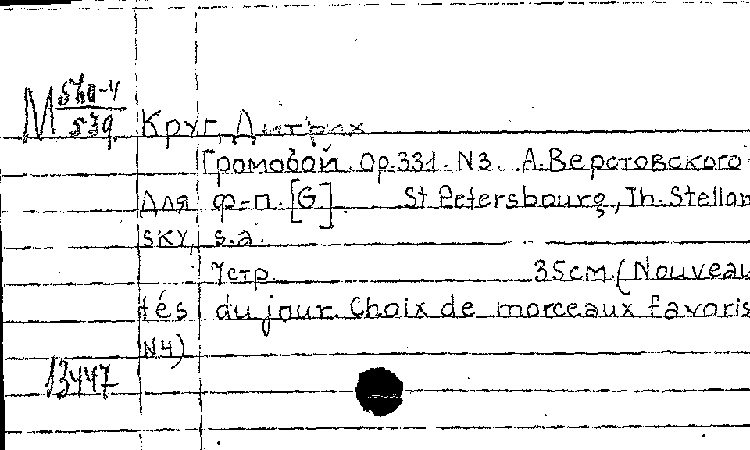 М 570-4
539
Круг, Дитрих
Громовой. Ор.331. N3. А.Верстовского
для ф-п. [G]. St. Petersbourg, Th. Stellow
sky, s.a.
7стр. 35см. (Nouveau
tés du jour. Choix de morceaux favoris
N4)
13447